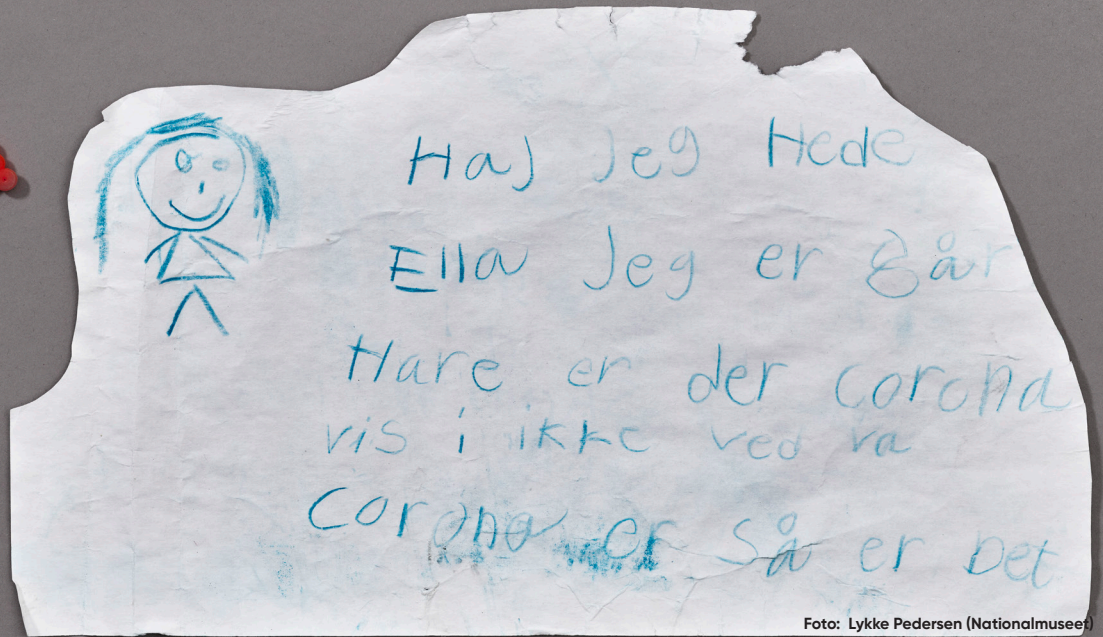 Haj Jeg Hede
Ella Jeg er 8 år
Hare er der corona
vis i ikke ved va
corona er så er Det
Foto: Lykke Pedersen (Nationalmuseet)